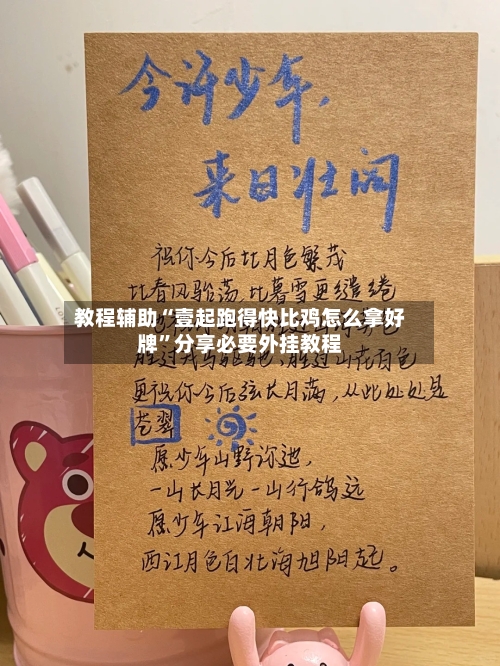 今许少年，
来日壮阔
祝你今后比月色繁茂
比春风骀荡，比暮雪更缱绻
教程辅助“壹起跑得快比鸡怎么拿好
牌”分享必要外挂教程
更祝你今后弦长月满，从此处处是
苍翠
愿少年山野弥逊，
一山长月光一山行鸽远
愿少年江海朝阳，
西江月色白壮海旭阳起。